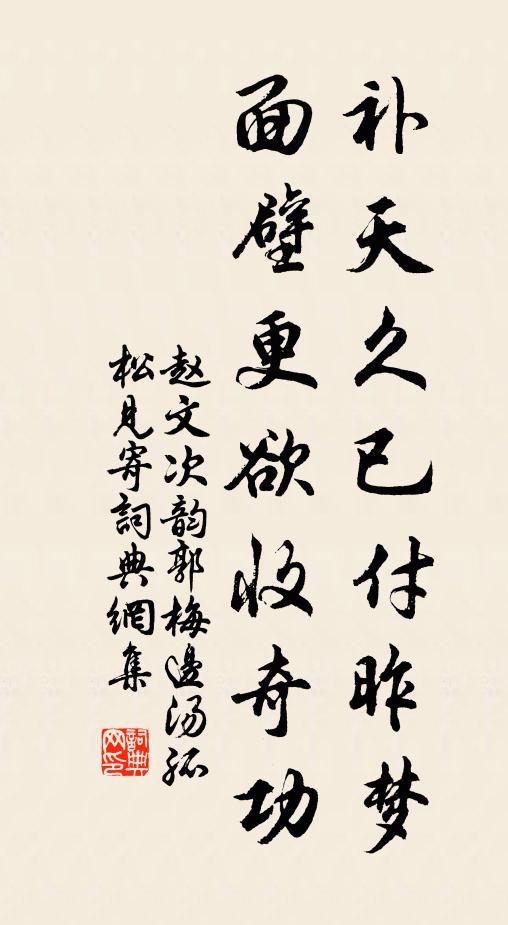 补天久已付昨梦
面壁更欲收奇功
赵文次韵郭梅边汤孤
松见寄詞典網集
詞典
网印